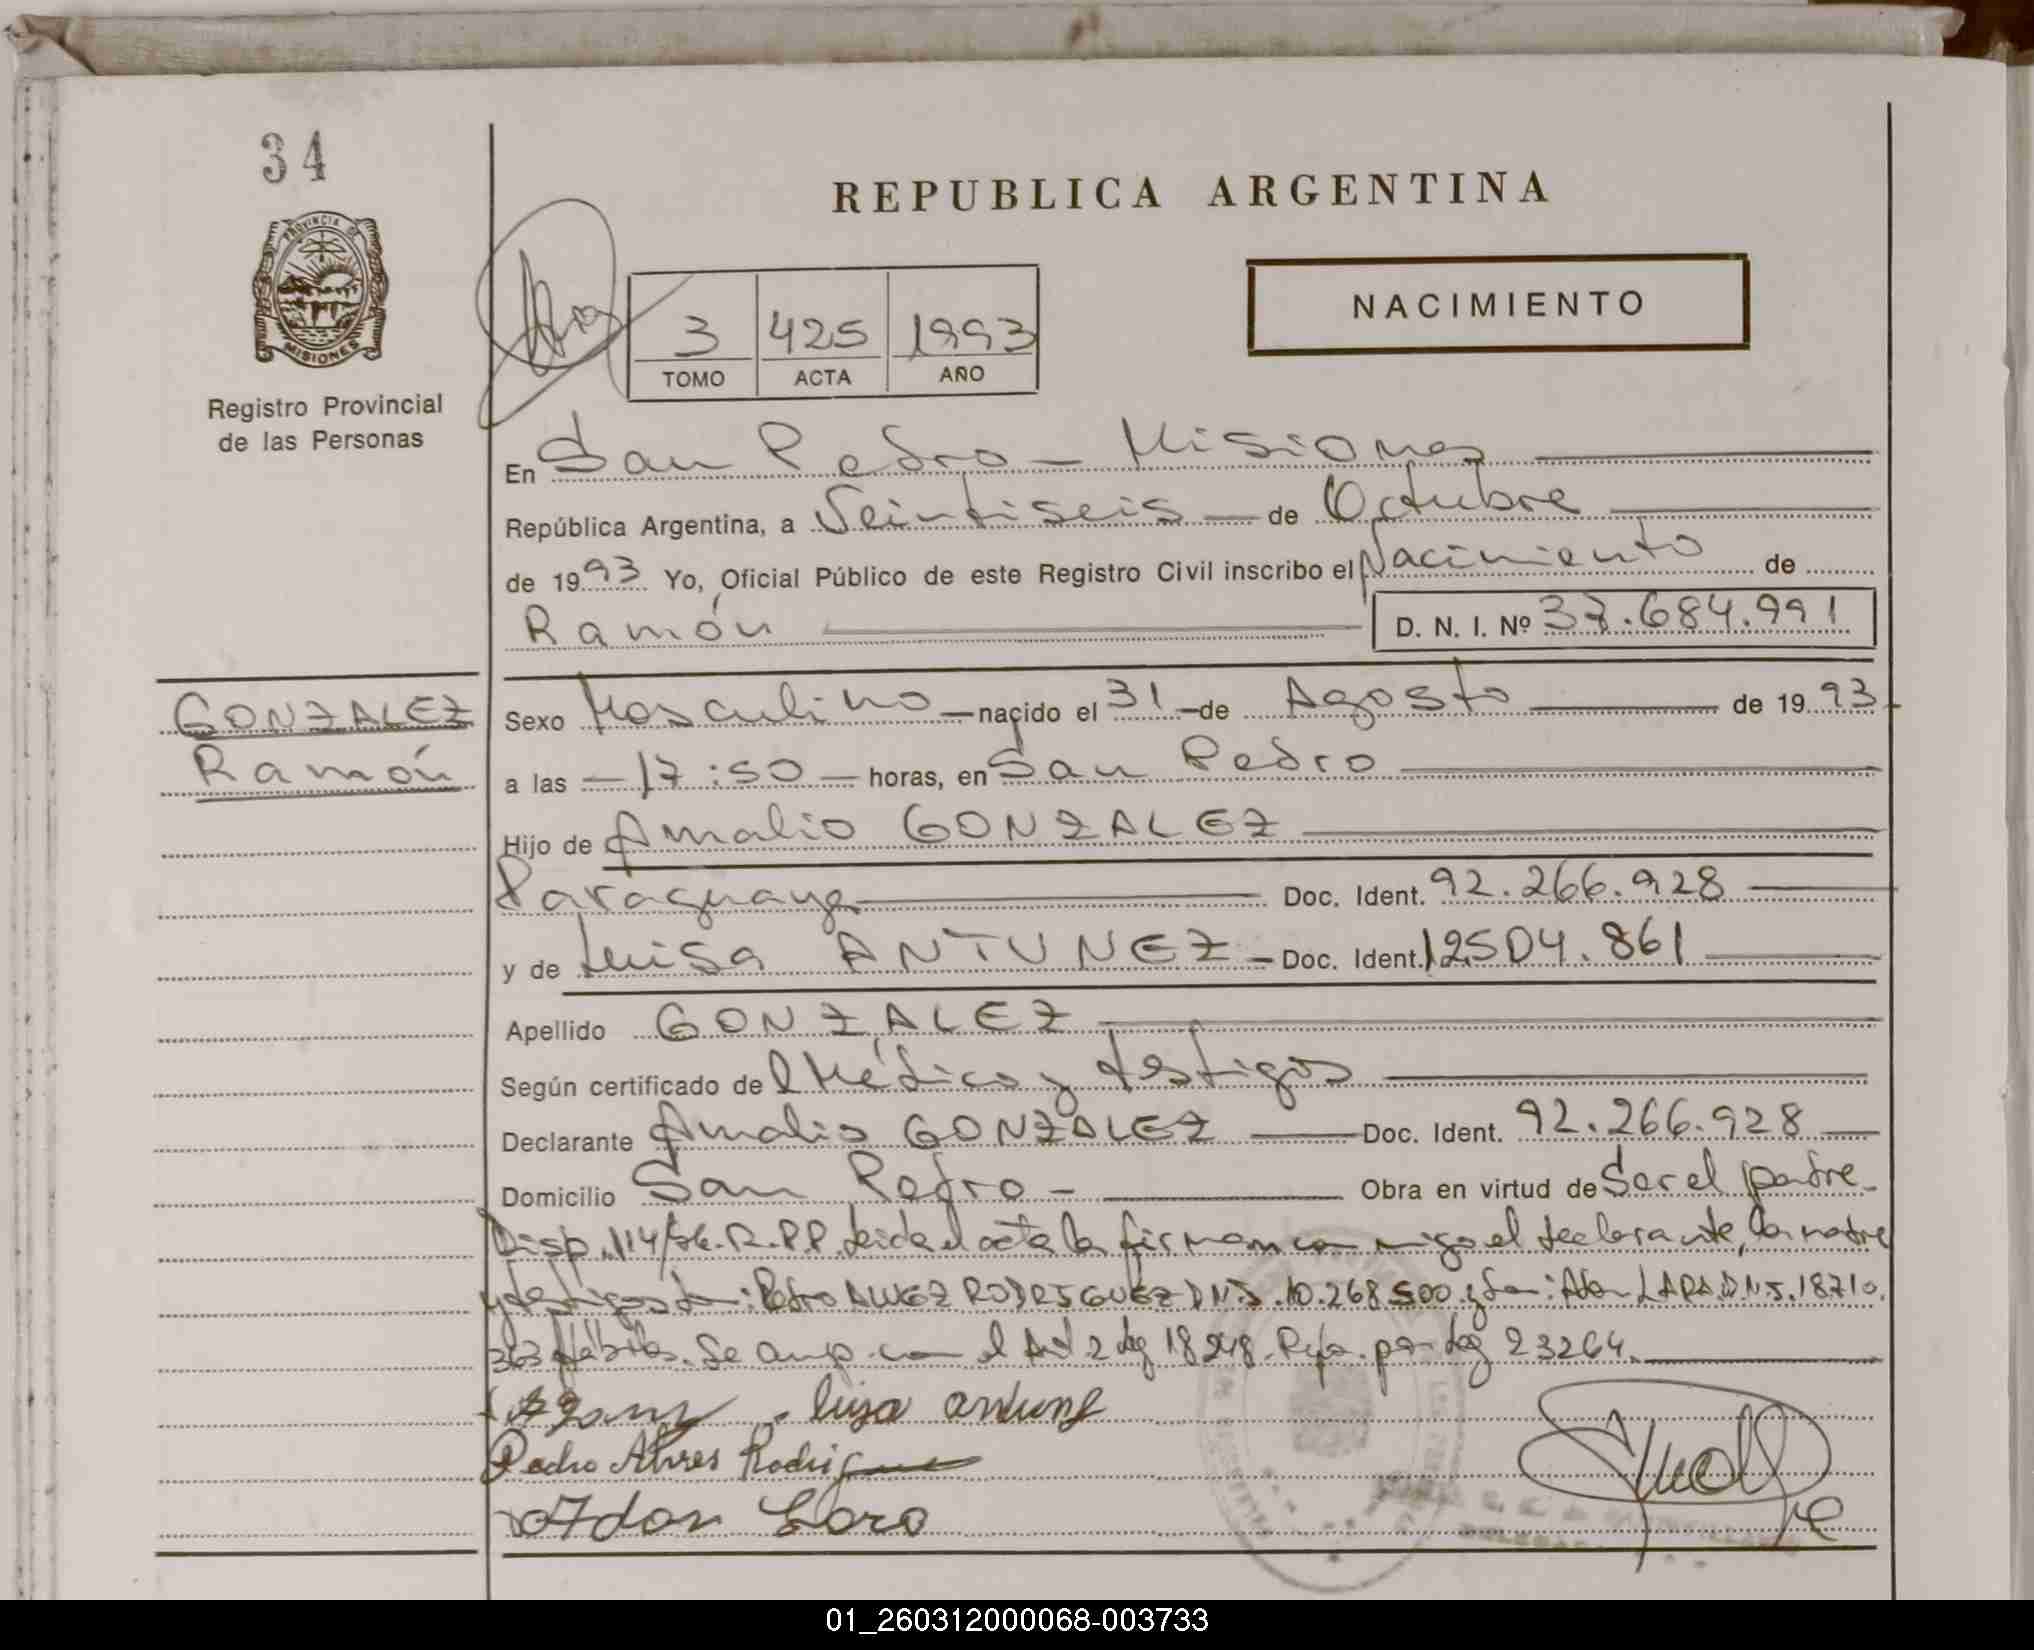 34
REPUBLICA ARGENTINA
PROVINCIA DE
MISIONES
NACIMIENTO
3 425 1993
TOMO ACTA AÑO
Registro Provincial
de las Personas
En San Pedro - Misiones
República Argentina, a Veintiseis de Octubre
de 1993 Yo, Oficial Público de este Registro Civil inscribo el Nacimiento de
Ramón D. N. I. Nº 37.684.991
GONZALEZ
Ramón
Sexo Masculino nacido el 31 de Agosto de 1993
a las 17:50 horas, en San Pedro
Hijo de Amalio GONZALEZ
Paraguaya Doc. Ident. 92.266.928
y de Luisa ANTUNEZ Doc. Ident. 12504.861
Apellido GONZALEZ
Según certificado del Médico y testigos
Declarante Amalio GONZALEZ Doc. Ident. 92.266.928
Domicilio San Pedro - Obra en virtud de Ser el padre
Disp. 114/ R.P.P. leida el acta la firman con migo el declarante, la madre
y testigos Don: Pedro ALVEZ RODRIGUEZ D.N.I. 10.268.500 y Don: Adan LARA D.N.I. 18710.
363 hábiles. Se con el Art 2 ley 18248. por ley 23264.
luisa antunez
Pedro Alvres Rodrigues
Adan Lara
01_260312000068-003733